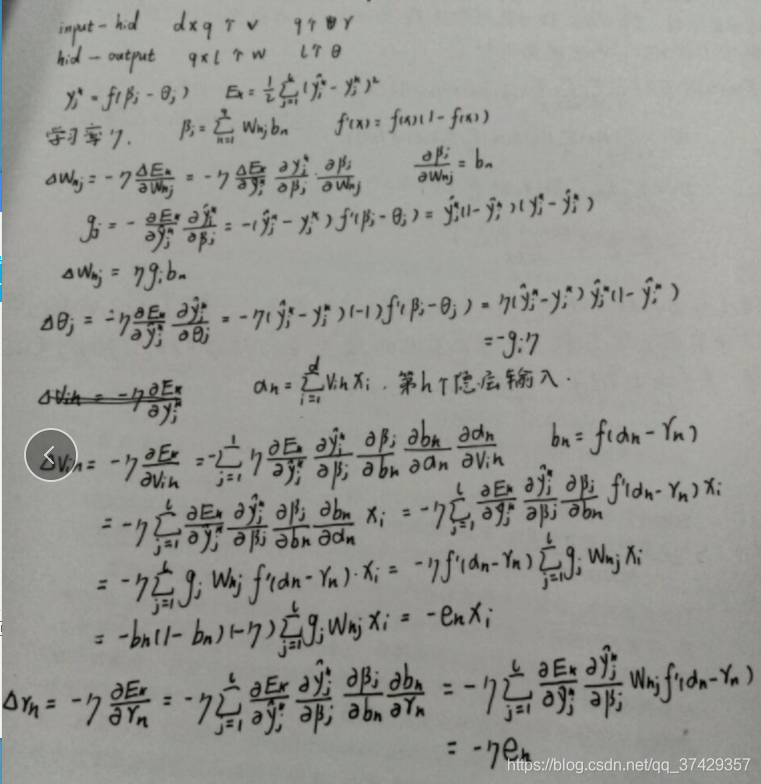 input-hid d×q 个 v q个 γ
hid-output q×l 个 w l个 θ
ŷⱼᵏ = f(βⱼ - θⱼ) Eₖ = 1/2 ∑ⱼ₌₁ˡ (ŷⱼᵏ - yⱼᵏ)²
学习率 η. βⱼ = ∑ₕ₌₁^q Wₕⱼ bₕ f'(x) = f(x)(1 - f(x))
ΔWₕⱼ = -η ΔEₖ/∂Wₕⱼ = -η ΔEₖ/∂ŷⱼᵏ ∂ŷⱼᵏ/∂βⱼ · ∂βⱼ/∂Wₕⱼ ∂βⱼ/∂Wₕⱼ = bₕ
gⱼ = - ∂Eₖ/∂ŷⱼᵏ ∂ŷⱼᵏ/∂βⱼ = -(ŷⱼᵏ - yⱼᵏ) f'(βⱼ - θⱼ) = ŷⱼᵏ(1 - ŷⱼᵏ)(yⱼᵏ - ŷⱼᵏ)
ΔWₕⱼ = η gⱼ bₕ
Δθⱼ = -η ∂Eₖ/∂ŷⱼᵏ ∂ŷⱼᵏ/∂θⱼ = -η(ŷⱼᵏ - yⱼᵏ)(-1) f'(βⱼ - θⱼ) = η(ŷⱼᵏ - yⱼᵏ) ŷⱼᵏ(1 - ŷⱼᵏ)
= -gⱼη
ΔVᵢₕ = -η ∂Eₖ/∂yⱼᵏ αₕ = ∑ᵢ₌₁ᵈ Vᵢₕ Xᵢ . 第h个隐层输入.
ΔVᵢₕ = -η ∂Eₖ/∂Vᵢₕ = -∑ⱼ₌₁ˡ η ∂Eₖ/∂ŷⱼᵏ ∂ŷⱼᵏ/∂βⱼ ∂βⱼ/∂bₕ ∂bₕ/∂αₕ ∂αₕ/∂Vᵢₕ bₕ = f(αₕ - γₕ)
= -η ∑ⱼ₌₁ˡ ∂Eₖ/∂ŷⱼᵏ ∂ŷⱼᵏ/∂βⱼ ∂βⱼ/∂bₕ ∂bₕ/∂αₕ Xᵢ = -η ∑ⱼ₌₁ˡ ∂Eₖ/∂ŷⱼᵏ ∂ŷⱼᵏ/∂βⱼ ∂βⱼ/∂bₕ f'(αₕ - γₕ) Xᵢ
= -η ∑ⱼ₌₁ˡ gⱼ Wₕⱼ f'(αₕ - γₕ) · Xᵢ = -η f'(αₕ - γₕ) ∑ⱼ₌₁ˡ gⱼ Wₕⱼ Xᵢ
= -bₕ(1 - bₕ)(-η) ∑ⱼ₌₁ˡ gⱼ Wₕⱼ Xᵢ = -eₕ Xᵢ
Δγₕ = -η ∂Eₖ/∂γₕ = -η ∑ⱼ₌₁ˡ ∂Eₖ/∂ŷⱼᵏ ∂ŷⱼᵏ/∂βⱼ ∂βⱼ/∂bₕ ∂bₕ/∂γₕ = -η ∑ⱼ₌₁ˡ ∂Eₖ/∂ŷⱼᵏ ∂ŷⱼᵏ/∂βⱼ Wₕⱼ f'(αₕ - γₕ)
= -η eₕ
https://blog.csdn.net/qq_37429357